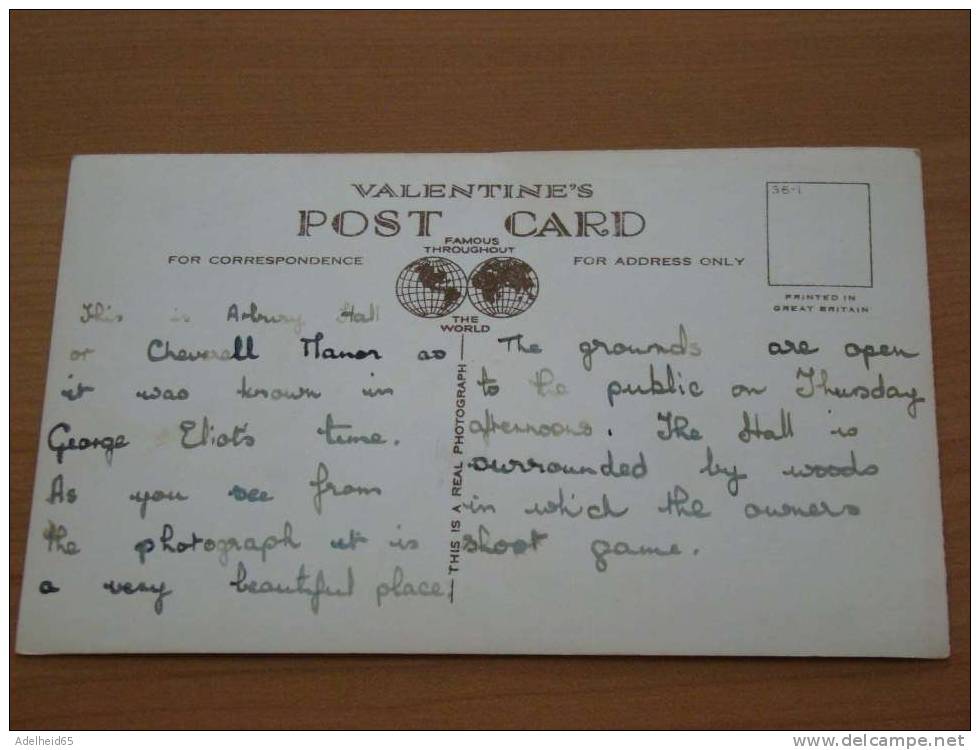 VALENTINE'S
POST CARD
FAMOUS
THROUGHOUT
THE
WORLD
FOR CORRESPONDENCE
FOR ADDRESS ONLY
36-1
PRINTED IN
GREAT BRITAIN
THIS IS A REAL PHOTOGRAPH
This is Arbury Hall
or Cheverall Manor as
it was known in
George Eliots time.
As you see from
the photograph it is
a very beautiful place.
The grounds are open
to the public on Thursday
afternoons. The Hall is
surrounded by woods
in which the owners
shoot game.
Adelheid65
www.delcampe.net